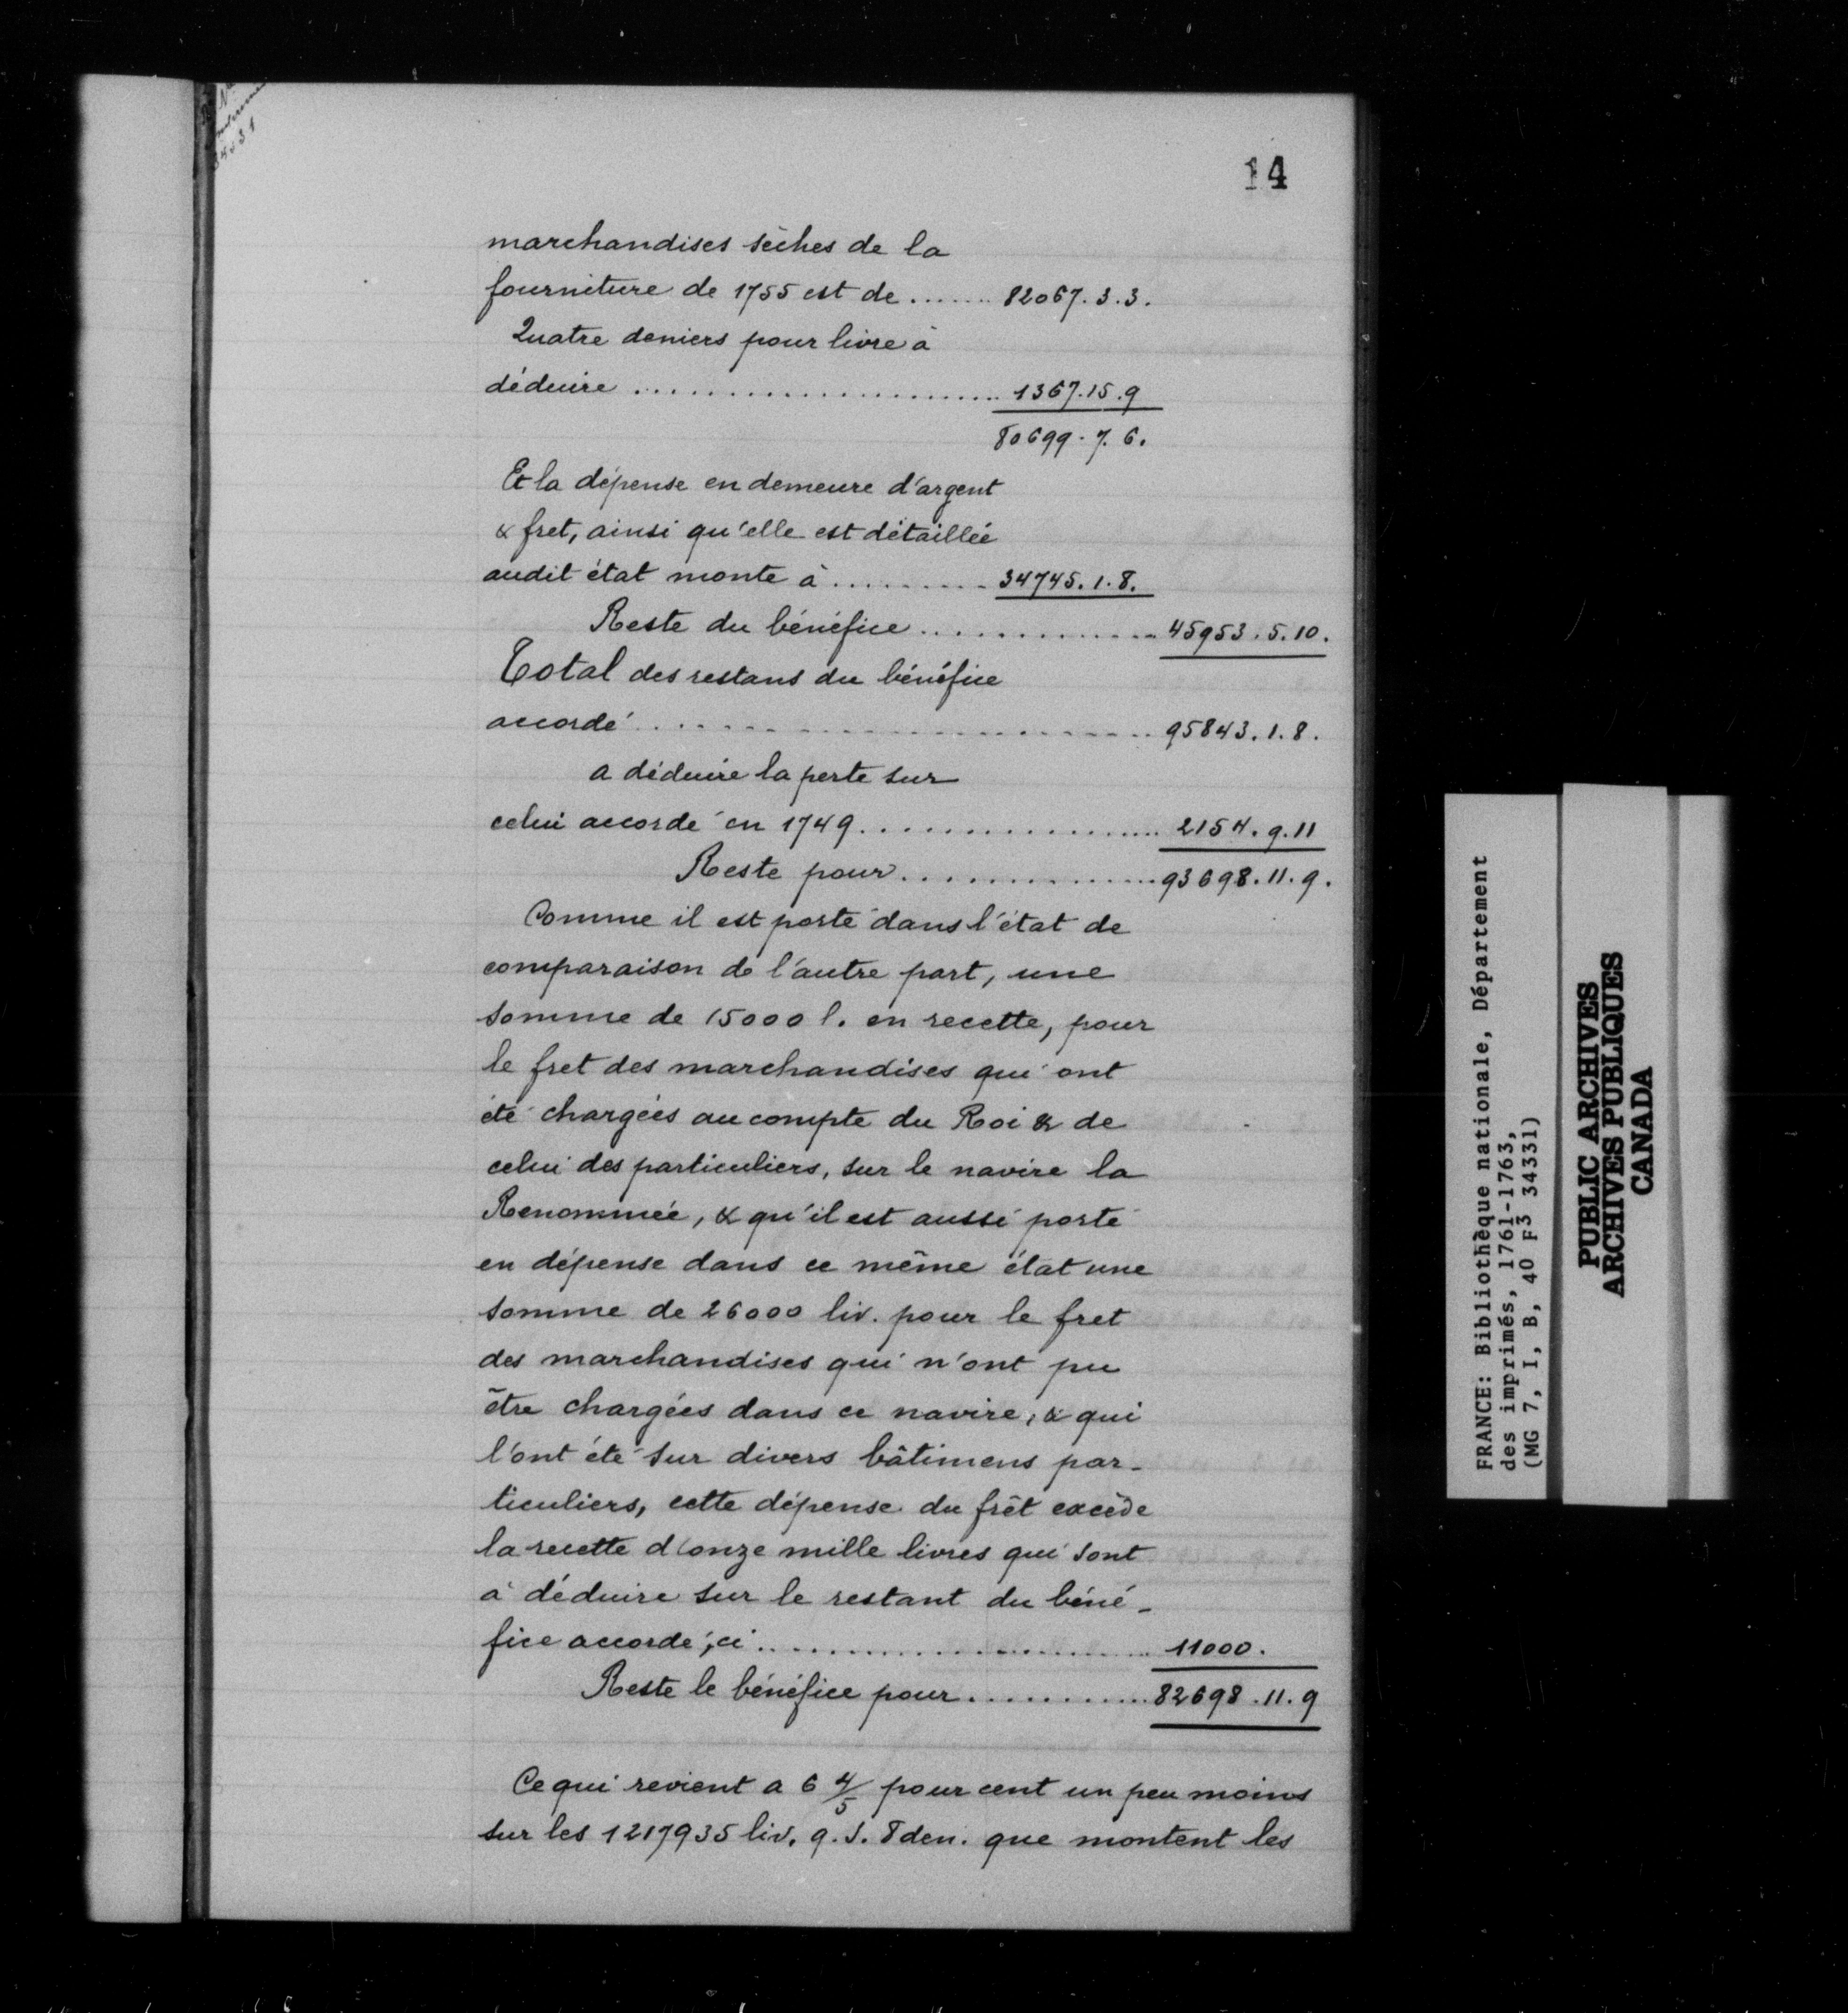 14
marchandises sèches de la
fourniture de 1755 est de ....... 82067. 3. 3.
Quatre deniers pour livre à
déduire ....................... 1367. 15. 9
80699. 7. 6.
Et la dépense en demeure d'argent
& fret, ainsi qu'elle est détaillée
audit état monte à .......... 34745. 1. 8.
Reste du bénéfice .............. 45953. 5. 10.
Total des restans du bénéfice
accordé ........................ 95843. 1. 8.
a déduire la perte sur
celui accordé en 1749 .................. 2154. 9. 11
Reste pour ............... 93698. 11. 9.
Comme il est porté dans l'état de
comparaison de l'autre part, une
somme de 15000 l. en recette, pour
le fret des marchandises qui ont
été chargées au compte du Roi & de
celui des particuliers, sur le navire la
Renommée, & qu'il est aussi porté
en dépense dans ce même état une
somme de 26000 liv. pour le fret
des marchandises qui n'ont pu
être chargées dans ce navire, & qui
l'ont été sur divers bâtimens par-
ticuliers, cette dépense du frêt excède
la recette d'onze mille livres qui sont
à déduire sur le restant du béné-
fice accordé, ci ........................ 11000.
Reste le bénéfice pour ........... 82698. 11. 9
Ce qui revient a 6 4/5 pour cent un peu moins
sur les 1217935 liv. 9. s. 8 den. que montent les
FRANCE: Bibliothèque nationale, Département
des imprimés, 1761-1763,
(MG 7, I, B, 40 F3 34331)
PUBLIC ARCHIVES
ARCHIVES PUBLIQUES
CANADA